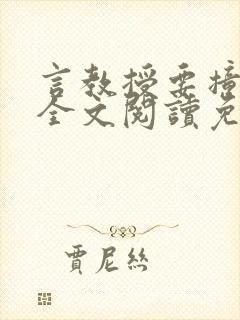 言教授要撞
全文閱讀免
賈尼絲